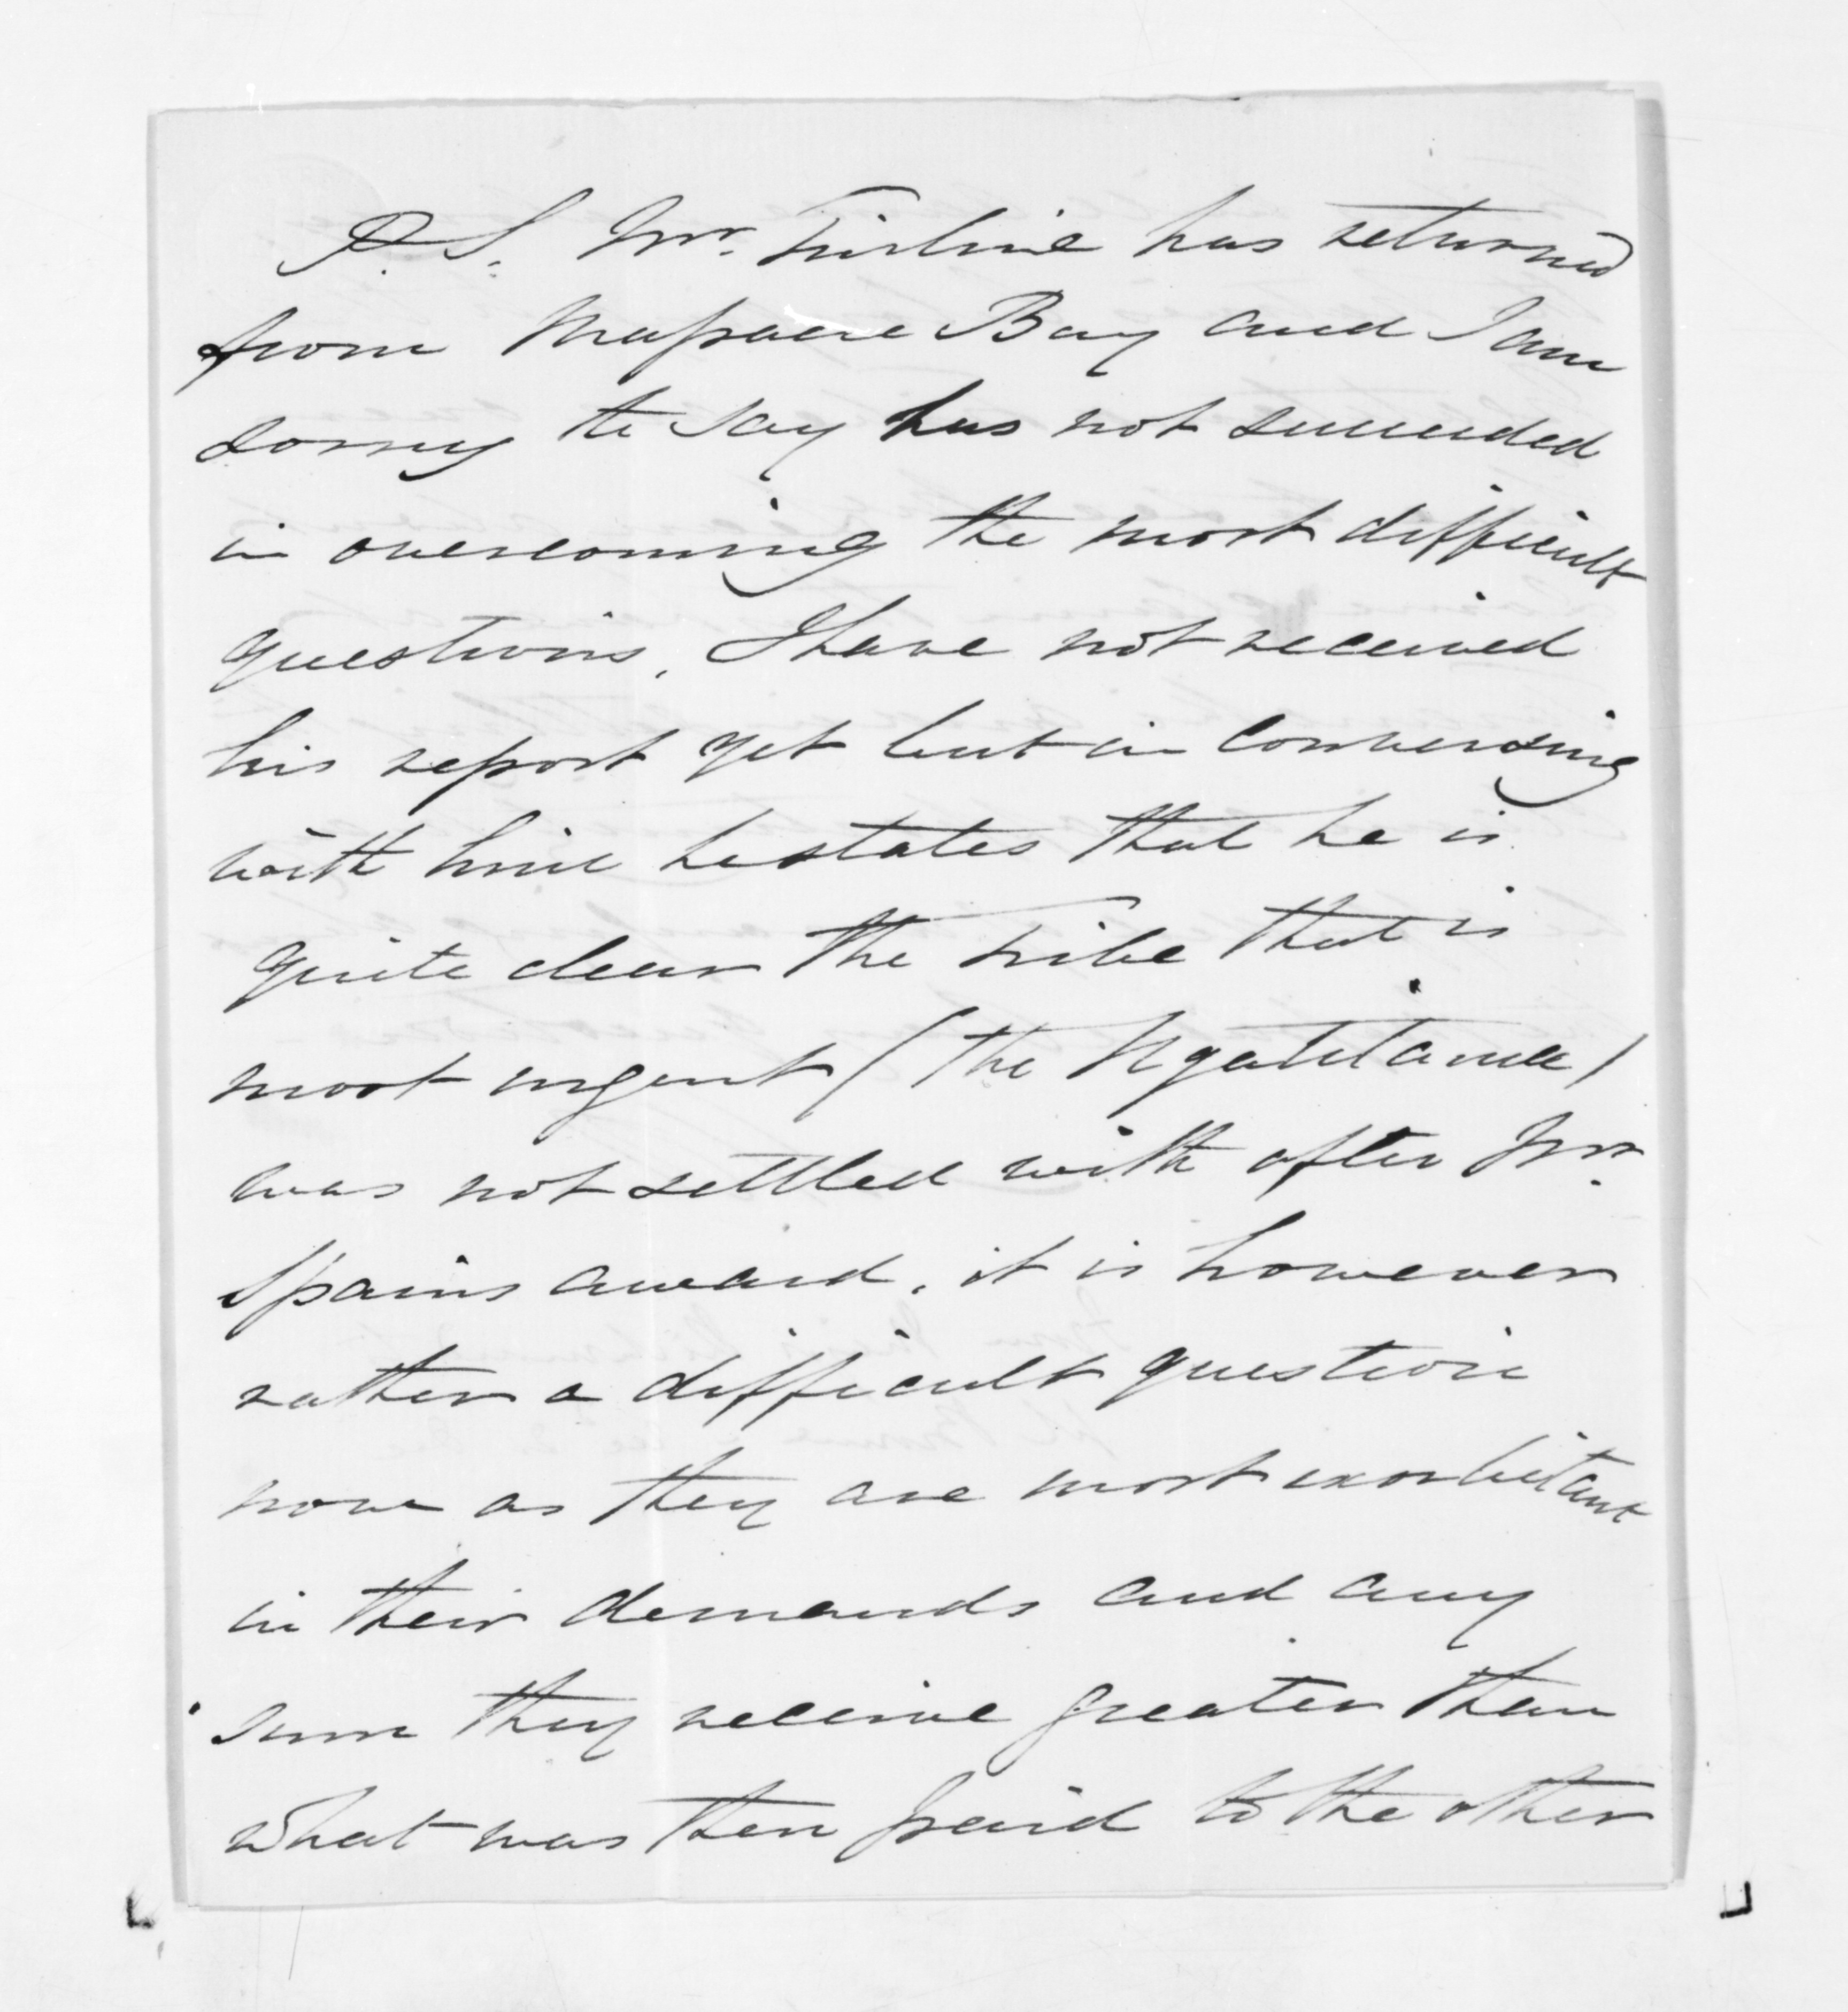 P.S. Mr. Tinline has returned
from Massacre Bay and I am
sorry to say has not succeeded
in overcoming the most difficult
questions, I have not received
his report yet but in conversing
with him he states that he is
quite clear the tribe that is
most urgent (the Ngatitama)
was not settled with after Mr.
Spains award, it is however
rather a difficult question
now as they are most exorbitant
in their demands and any
sum they receive greater than
what was then paid to the other